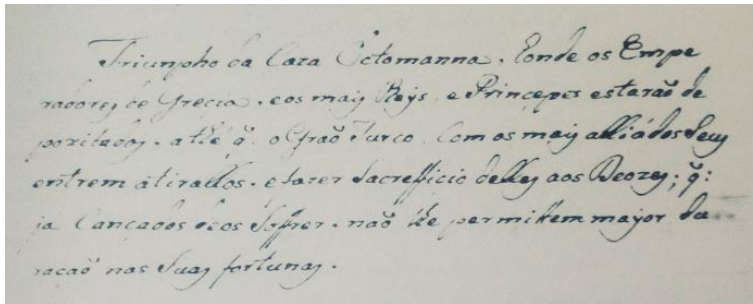 Triunpho da Caza Octomanna, londe os Empe
radores de Grecia, e os mais Reys, e Princepes estarão de
pozitados, athé q̃ o Grão Turco, com os mais alliádos seus
entrem átirallos, e fazer sacrefficio delles aos Deozes; q̃:
ja cançados de os soffrer, não lhe permittem mayor du
ração nas suas fortunas.